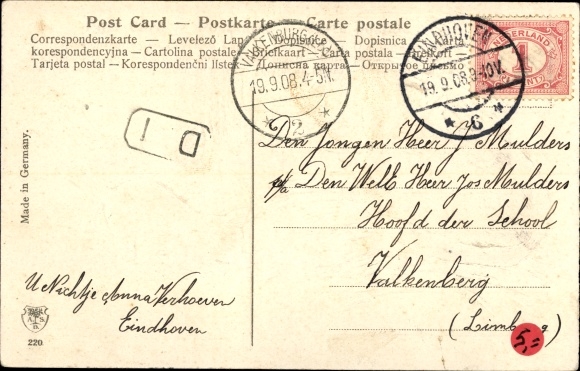 Post Card – Postkarte – Carte postale
Correspondenzkarte – Levelező Lap – Dopisnica
korespondencyjna – Cartolina postale – Briefkaart – Carta postala –
Tarjeta postal – Korespondenční lístek – Дописна карта – Открытое письмо
VALKENBURG
19.9.08.4-5.V.
2
EINDHOVEN
19.9.08.9-10V.
6
NEDERLAND
1
D I
Den Jongen Heer J Mulders
p/a Den WelE Heer Jos Mulders
Hoofd der School
Valkenberg
(Limburg)
Made in Germany.
U Nichtje Anna Verhoeven
Eindhoven
220
5,=